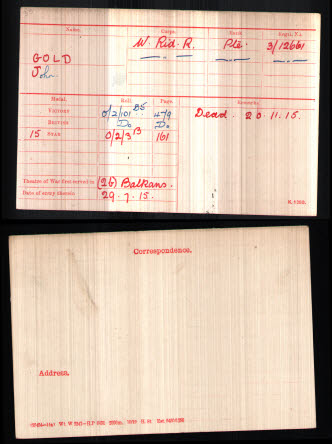 Name. Corps. Rank. Regtl. No.
GOLD W. Rid. R. Pte. 3/12661
John
Medal. Roll. Page. Remarks.
VICTORY O/2/101 B5 479 Dead. 20.11.15.
BRITISH Do Do
15 STAR O/2/3 B 161
Theatre of War first served in (2b) Balkans.
Date of entry therein 29.7.15.
Correspondence.
Address.